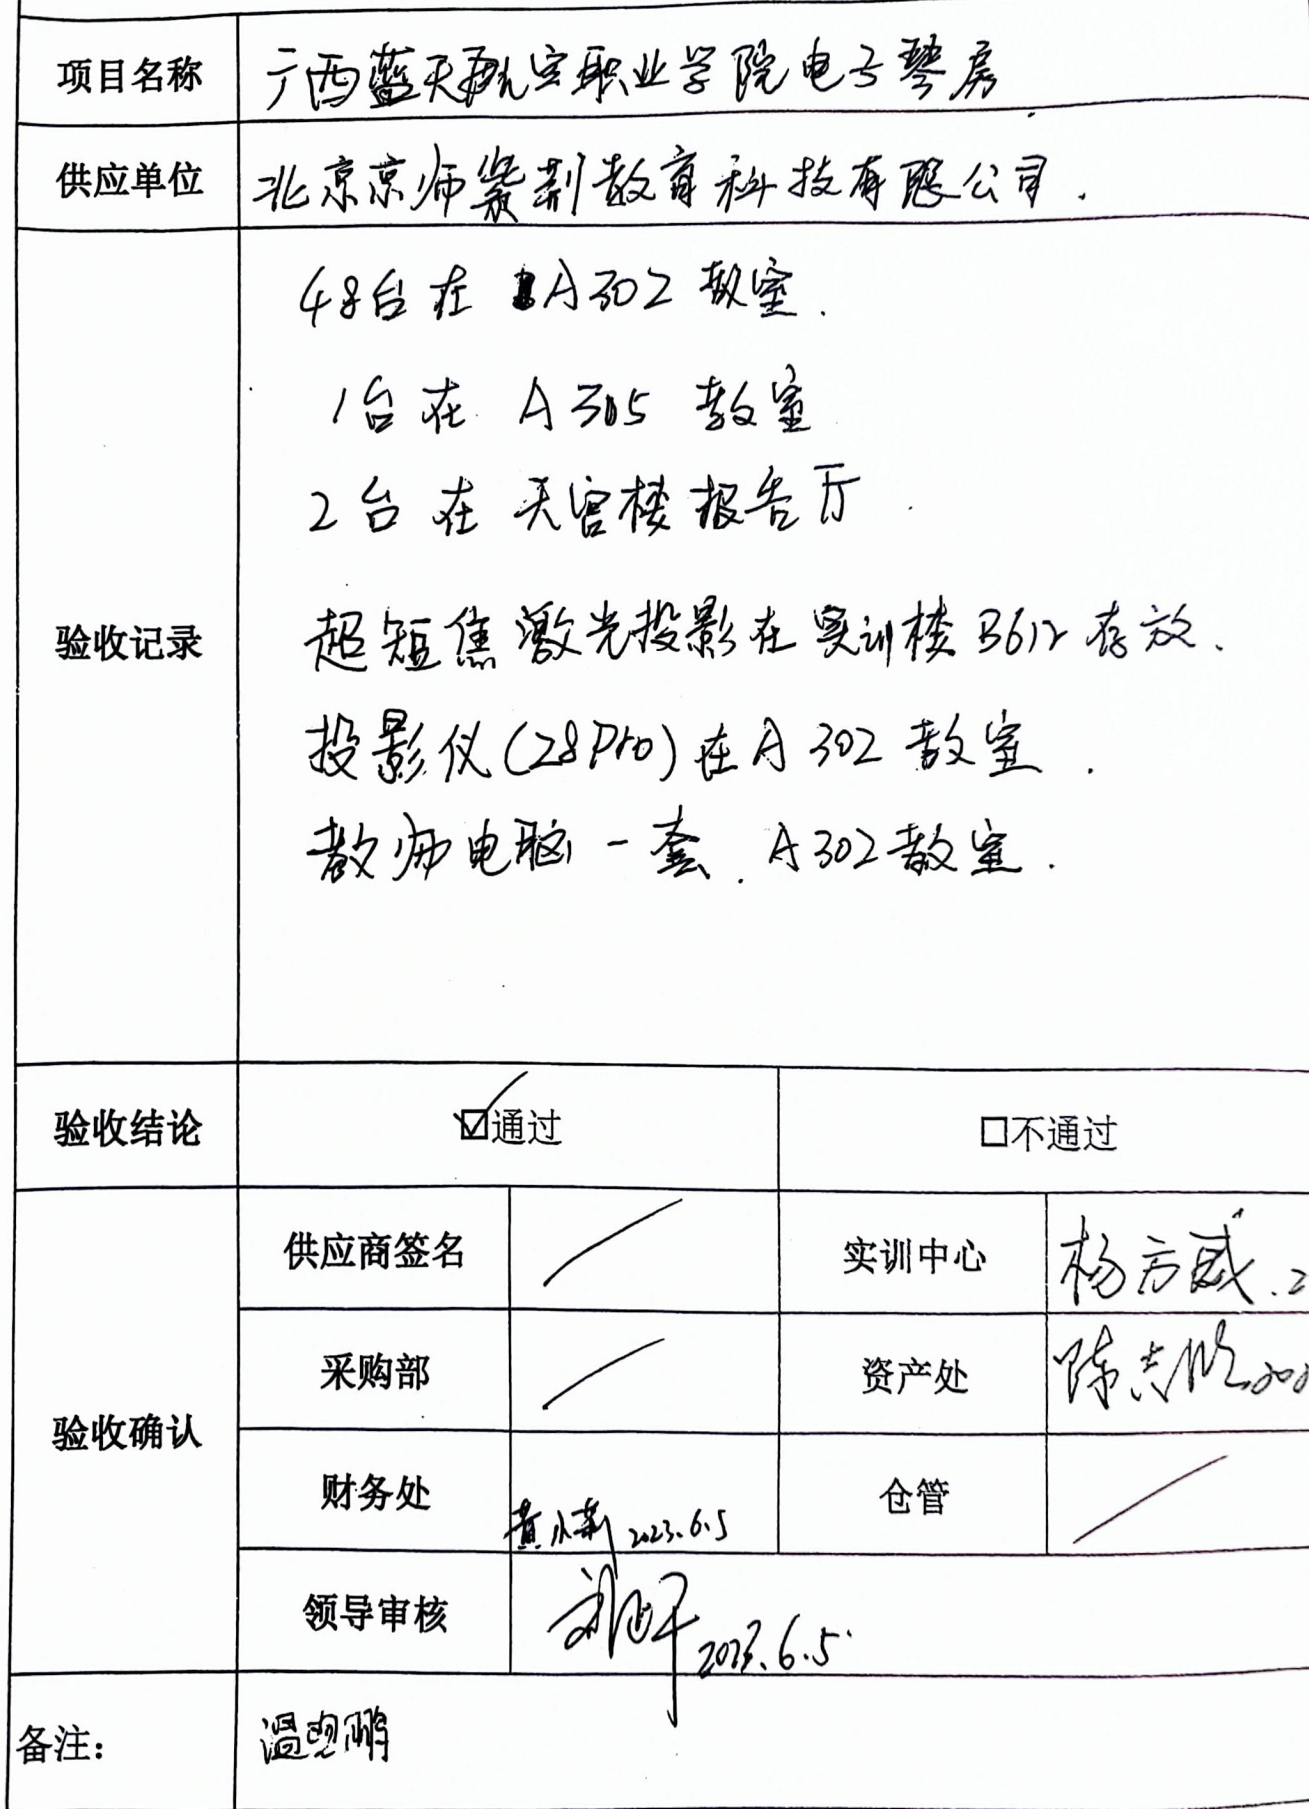 项目名称 广西蓝天航空职业学院电子琴房
供应单位 北京京师紫荆教育科技有限公司.
48台在 A302 教室.
1台在 A305 教室
2台在 天宫楼报告厅
验收记录
超短焦激光投影在实训楼B612存放.
投影仪(28Pro)在A302教室.
教师电脑一套. A302教室.
验收结论 ☑通过 □不通过
供应商签名 实训中心 杨方威.2
采购部 资产处 陈
验收确认
财务处 黄小 2023.6.5 仓管
领导审核 2023.6.5
备注: 温 鹏